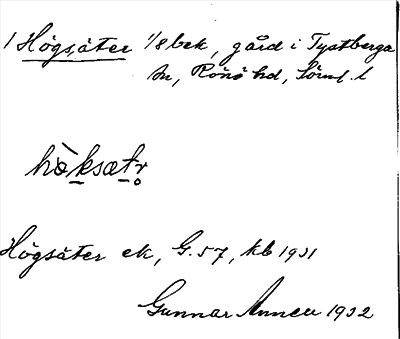 1 Högsäter 1/8 bek, gård i Tystberga
sn, Rönö hd, Söml. l
hö̀ksætr̥
Högsäter ek, G. 57, kb 1931
Gunnar Annell 1932